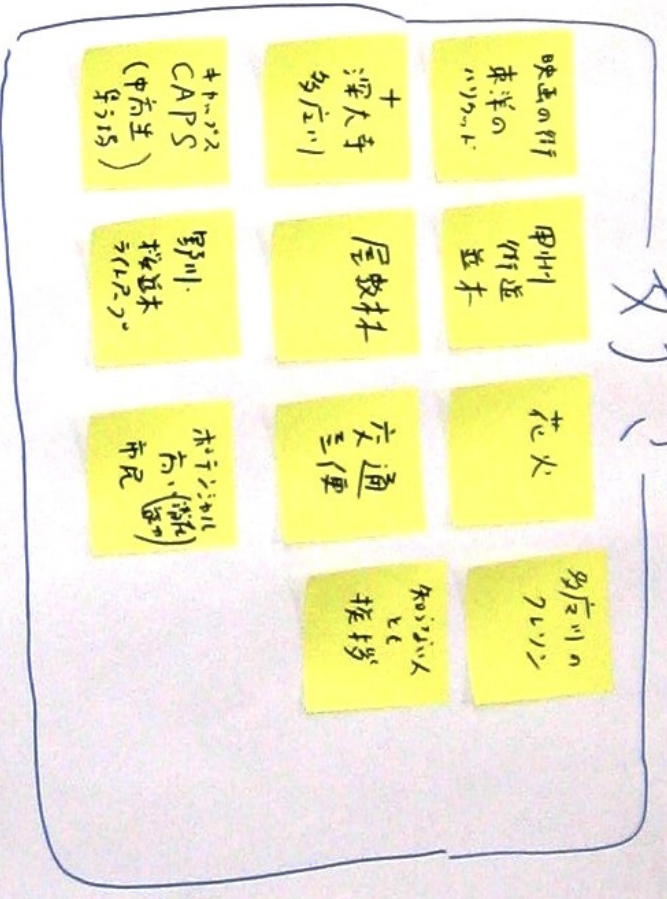 映画の街
東洋の
ハリウッド
甲州
街道
並木
花火
多摩川の
クレソン
+
深大寺
多摩川
屋敷林
交通
知らない人
とも
挨拶
キャップス
CAPS
(中高生
集う場)
野川・
桜並木
ライトアップ
ポテンシャル
高い(潜在
能力)
市民